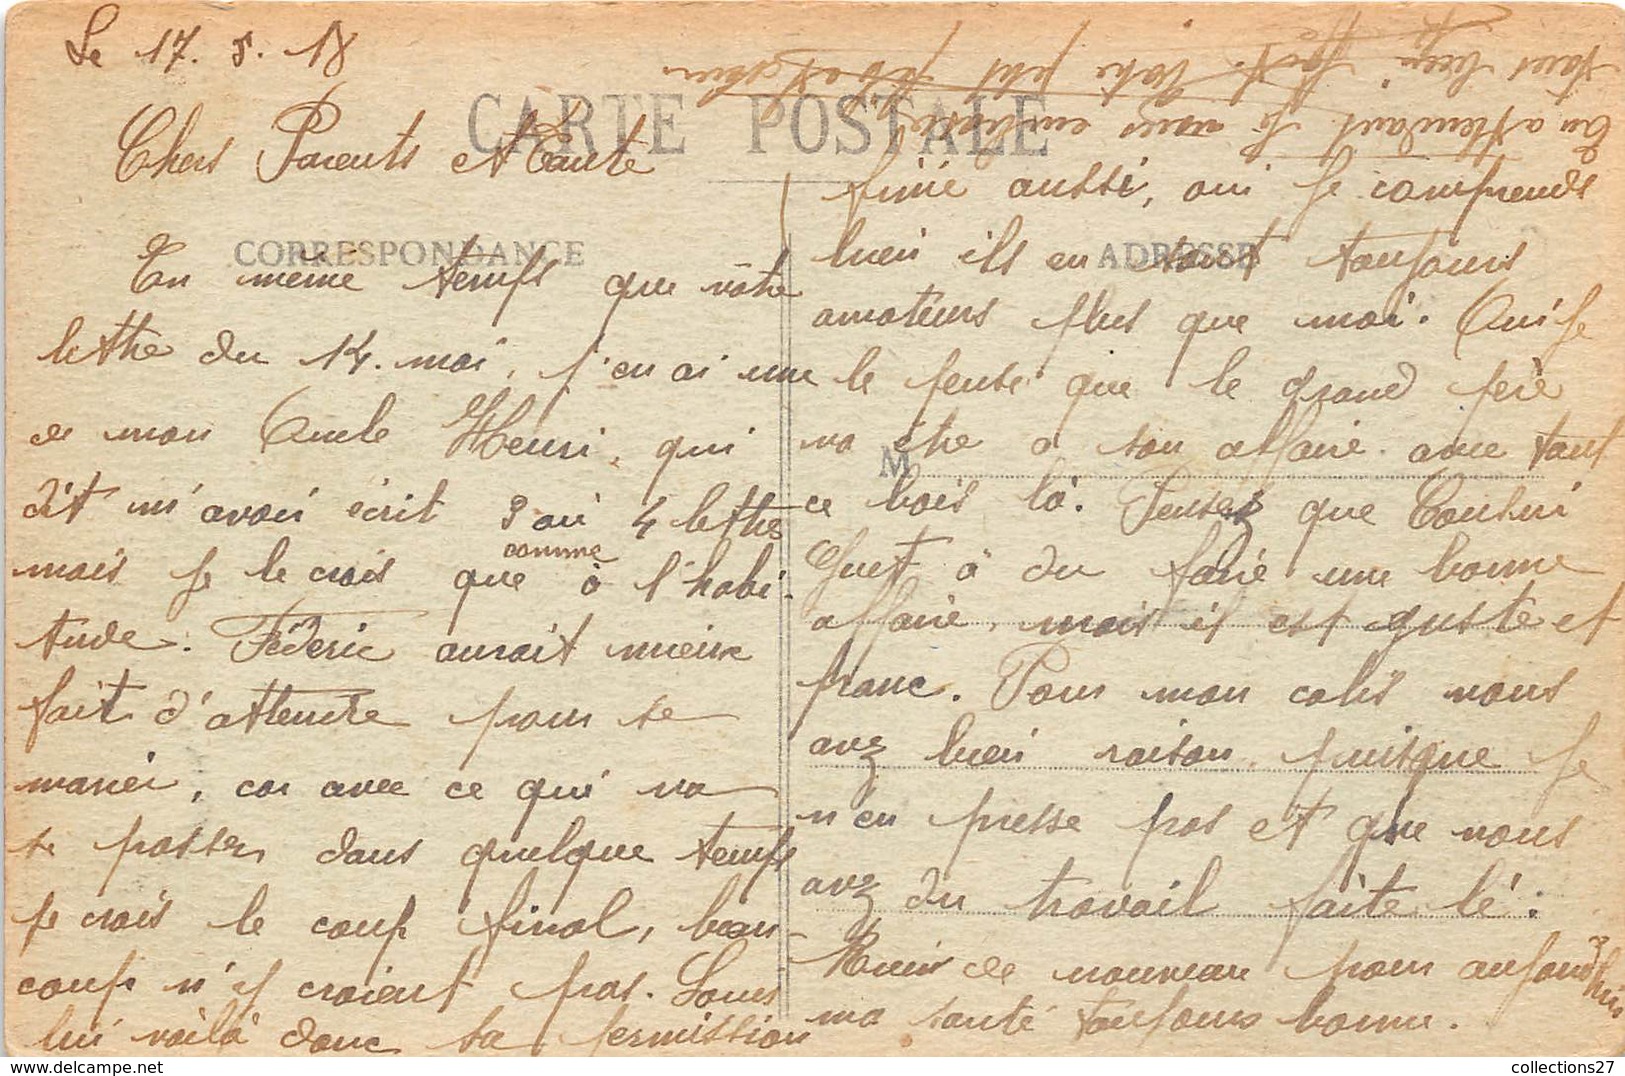 Le 17. 5. 18
CARTE POSTALE
Chers Parents et Tante
CORRESPONDANCE
En même temps que votre
lettre du 14. mai, j'en ai une
de mon Oncle Henri, qui
dit m'avoir écrit 3 ou 4 lettres
mais je le crois que comme à l'habi-
tude. Féderic aurait mieux
fait d'attendre pour se
marier, car avec ce qui va
se passer dans quelque temps
je crois le coup final, beau-
coup n'y croient pas. Louis
lui voilà donc sa permission
finie aussi, oui je comprends
ADRESSE
bien ils en sont toujours
amateurs plus que moi. Oui je
le pense que le grand père
M
va être a son affaire avec tout
ce bois là. Pensez que
à du faire une bonne
affaire, mais il est guste et
franc. Pour mon colis vous
avez bien raison puisque je
n'en presse pas et que vous
avez du travail faite lé.
Rien de nouveau pour aujourd'hui
ma santé toujours bonne.
En attendant je vous embrasse
tous bien fort. Votre petit
collections27